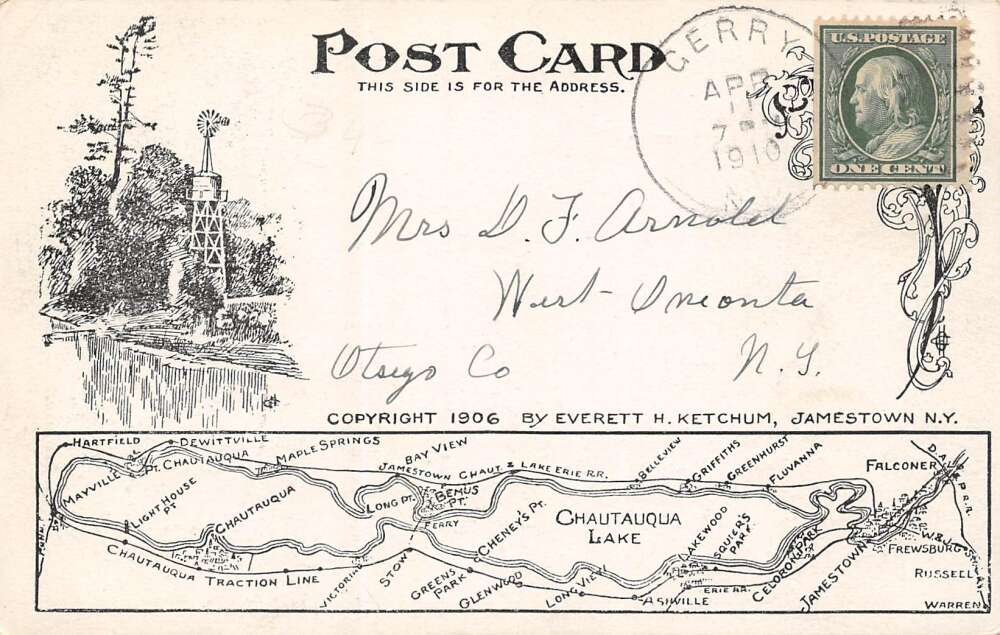 POST CARD
THIS SIDE IS FOR THE ADDRESS.
GERRY
APR
11
1910
N
U.S. POSTAGE
ONE CENT
Mrs D. F. Arnold
West-Oneonta
Otsego Co N.Y.
COPYRIGHT 1906 BY EVERETT H. KETCHUM, JAMESTOWN N.Y.
HARTFIELD
DEWITTVILLE
PT. CHAUTAUQUA
MAPLE SPRINGS
BAY VIEW
JAMESTOWN CHAUT. & LAKE ERIE R.R.
BELLEVIEW
GRIFFITHS
GREENHURST
FLUVANNA
FALCONER
D.A.V. & P.R.R.
MAYVILLE
LIGHT HOUSE PT
CHAUTAUQUA
LONG PT.
BEMUS PT.
FERRY
CHENEY'S PT.
CHAUTAUQUA LAKE
LAKEWOOD
SQUIER'S PARK
CELORON PARK
JAMESTOWN
FREWSBURG
RUSSELL
WARREN
CHAUTAUQUA TRACTION LINE
VICTORIA
STOW
GREENS PARK
GLENWOOD
LONG VIEW
ASHVILLE
ERIE R.R.